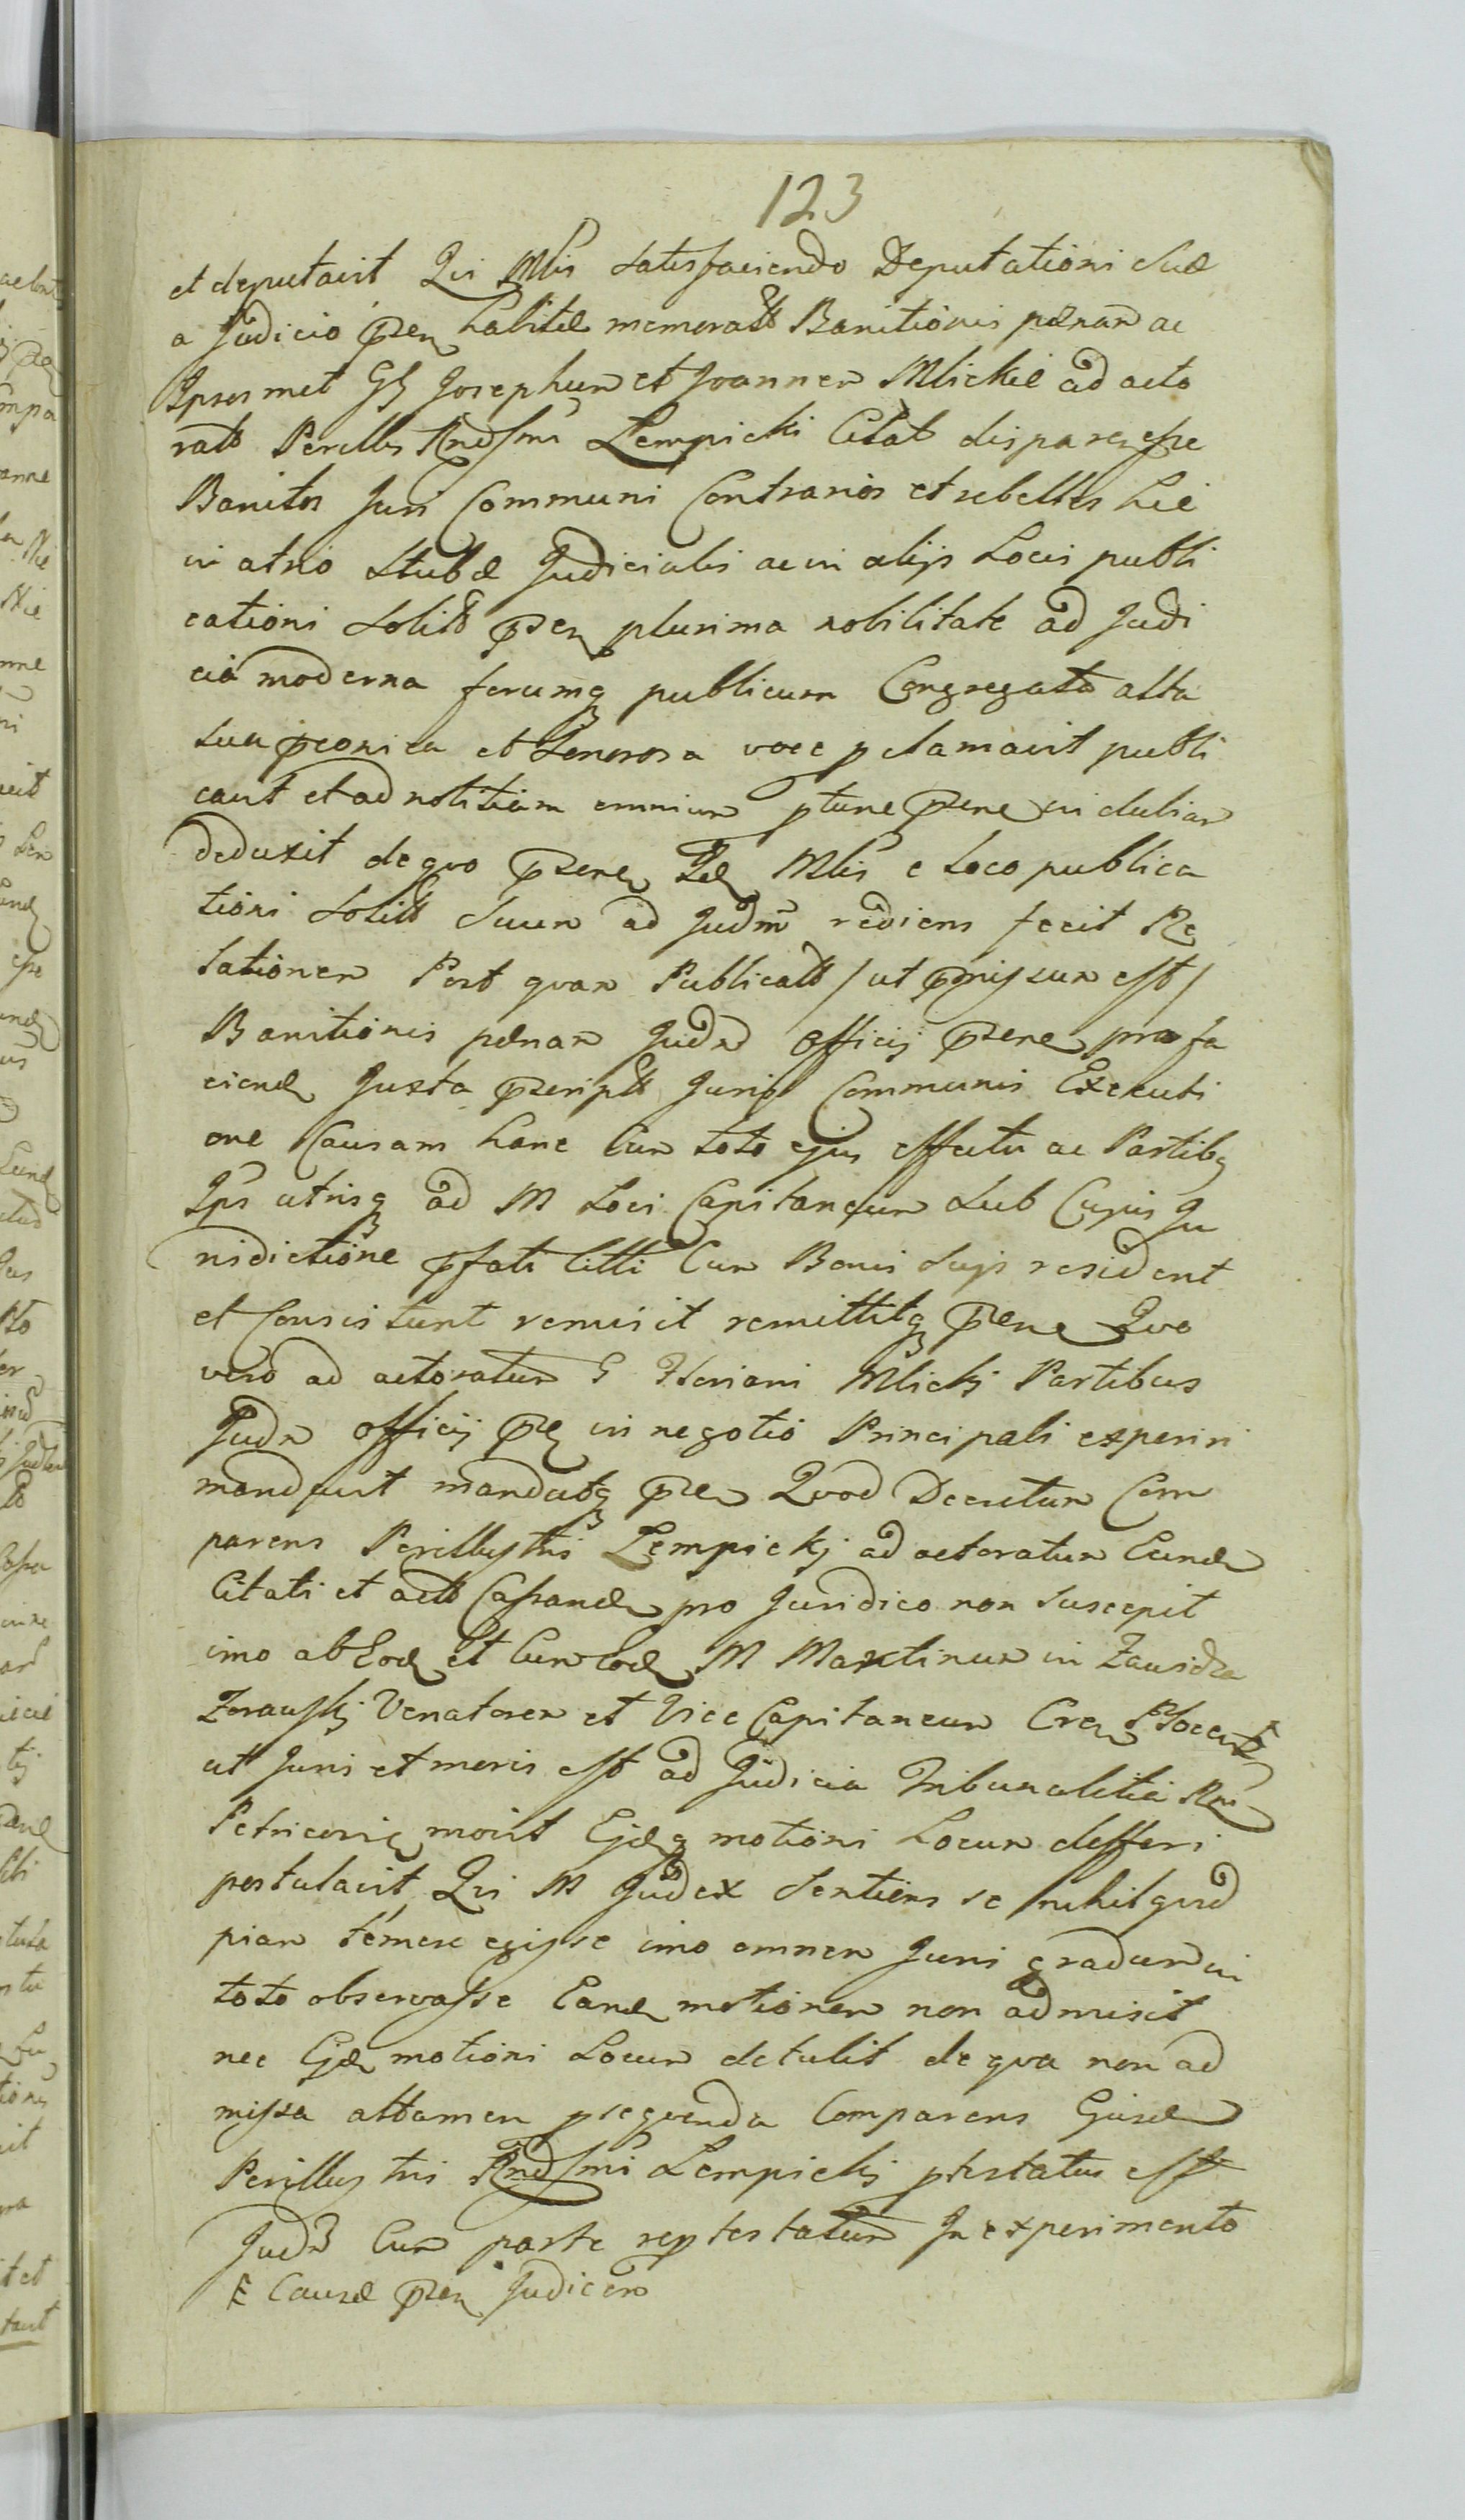 123
et deputavit Qui Mlis satisfaciendo Deputationi suæ
a Judicio præn habitæ memoratt Banitionis pænam ac
Ipsosmet GG Josephum et Joannem Mlickie ad acto
ratt Perillis Rndssmi Lempicki Citat disparen esse
Banitos Juri Communi Contrarios et rebelles hic
in atrio stubæ Judicialis ac in alijs Locis publi
cationi solitis præn plurima nobilitate ad Judi
cia moderna forumq publicum Congregata alta
sua præconica et sonorosa voce pclamavit publi
cavit et ad notitiam omnium ptunc præne in dubiam
deduxit de quo præne Id Mlis e Loco publica
tioni solitt suum ad Judm rediens fecit Re
lationem Post quam Publicatt /ut præmissum est/
Banitionis pænam Judm Officij præne pro fa
ciend Juxta præscriptt Juris Communis Executi
one Causam hanc Cum toto ejus effectu ac Partibq
Ips utrisq ad M Loci Capitaneum sub Cujus Ju
risdictione pfati Citti Cum Bonis suis resident
et Consistunt remisit remittitq præne Quo
vero ad actoratum G Floriani Mlickj Partibus
Judm officij præ in negotio Principali experiri
mandavit mandatq præn Quod Decretum Com
parens Perillustris Lempickj ad actoratum Eund
Citati et actt Cassand pro Juridico non suscepit
imo ab Eod et Cum Eod M Martinum in Zawidz
Zorawskj Venatorem et Vice Capitaneum Cren Plocen
ut Juris et moris est ad Judicia Tribunalitia Rni
Petricovie movit Ejdq motioni Locum defferi
postulavit Qui M Judex sentiens se nihil quid
piam temere egisse imo omnem Juris gradum in
toto observasse Eand motionem non admisit
nec Ejd motioni Locum detulit de qua non ad
missa attamen psequenda Comparens Ejusd
Perillustris Rndssmi Lempickj ptestatus est
Judm Cum parte reptestatum In experimento
E Causæ præn Judicem